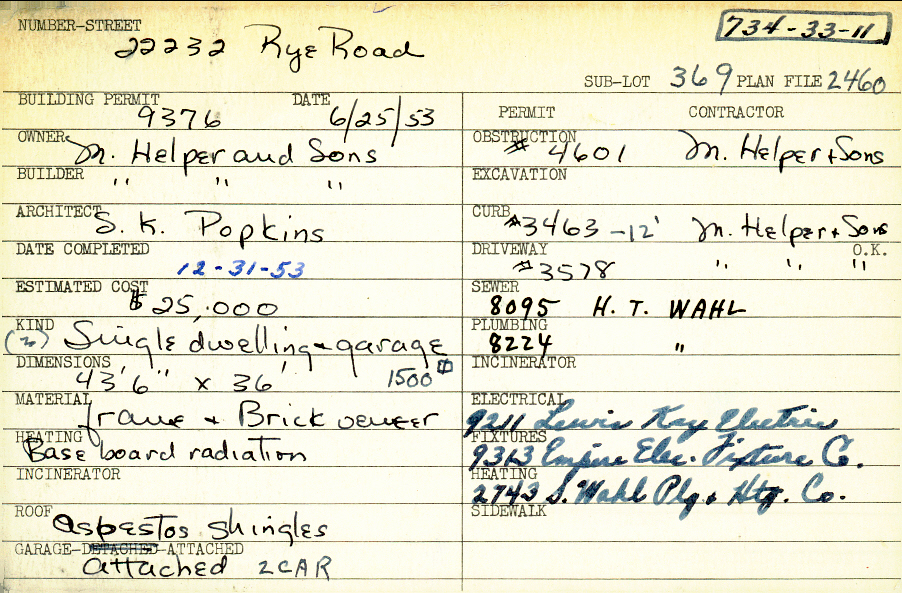 NUMBER-STREET
22232 Rye Road
734-33-11
SUB-LOT 369 PLAN FILE 2460
BUILDING PERMIT DATE
9376 6/25/53
OWNER
M. Helper and Sons
BUILDER " " "
ARCHITECT
S. K. Popkins
DATE COMPLETED
12-31-53
ESTIMATED COST
$25,000
KIND
(2) Single dwelling + garage
DIMENSIONS
43'6" x 36' 1500
MATERIAL
frame + Brick veneer
HEATING
Base board radiation
INCINERATOR
ROOF
aspestos shingles
GARAGE-DETACHED-ATTACHED
attached 2CAR
PERMIT CONTRACTOR
OBSTRUCTION
# 4601 M. Helper + Sons
EXCAVATION
CURB
#3463 -12' M. Helper + Sons
DRIVEWAY O.K.
#3578 " " "
SEWER
8095 H. T. WAHL
PLUMBING
8224 "
INCINERATOR
ELECTRICAL
9211 Lewis Kay Electric
FIXTURES
9313 Empire Elec. Fixture Co.
HEATING
2743 S. Wahl Plg. + Htg. Co.
SIDEWALK